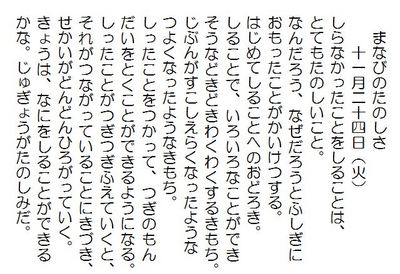 まなびのたのしさ
十一月二十四日(火)
しらなかったことをしることは、
とてもたのしいこと。
なんだろう、なぜだろうとふしぎに
おもったことがかいけつする。
はじめてしることへのおどろき。
しることで、いろいろなことができ
そうなどきどきわくわくするきもち。
じぶんがすこしえらくなったような
つよくなったようなきもち。
しったことをつかって、つぎのもん
だいをとくことができるようになる。
しったことがつぎつぎふえていくと、
それがつながっていることにきづき、
せかいがどんどんひろがっていく。
きょうは、なにをしることができる
かな。じゅぎょうがたのしみだ。